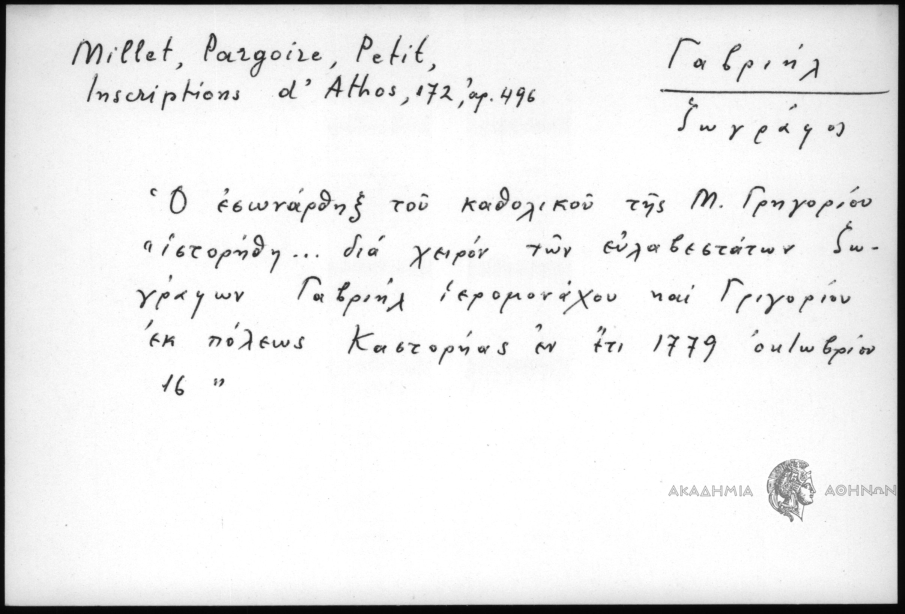 Millet, Pargoire, Petit,
Inscriptions d' Athos, 172, ἀρ. 496
Γαβριήλ
ζωγράφος
Ὁ ἐσωνάρθηξ τοῦ καθολικοῦ τῆς Μ. Γρηγορίου
"ἱστορήθη... διά χειρόν τῶν εὐλαβεστάτων ζω-
γράφων Γαβριήλ ἱερομονάχου καί Γριγορίου
ἐκ πόλεως Καστορήας ἐν ἔτι 1779 ὀκτωβρίου
16 "
ΑΚΑΔΗΜΙΑ ΑΘΗΝΩΝ